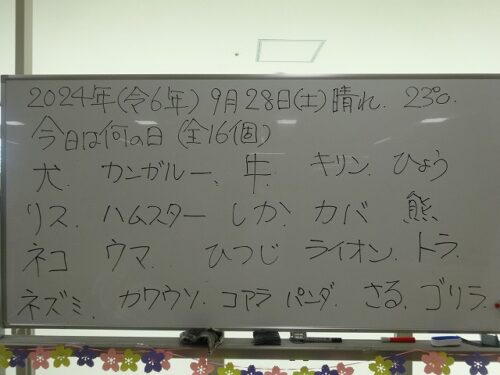 2024年(令6年) 9月28日(土)晴れ. 23°.
今日は何の日 (全16個)
犬. カンガルー、牛. キリン. ひょう
リス. ハムスター しか. カバ 熊
ネコ ウマ. ひつじ ライオン. トラ.
ネズミ. カワウソ. コアラ パンダ. さる. ゴリラ.